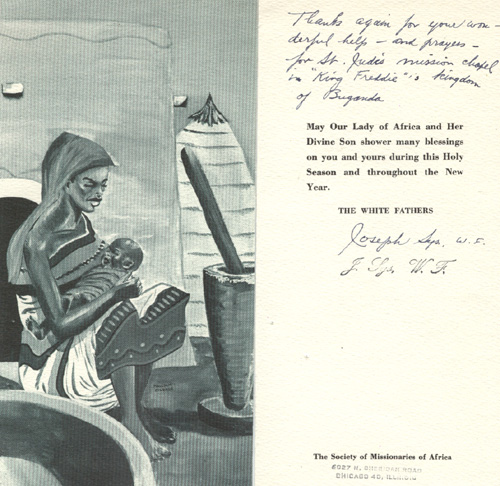 Thanks again for your won-
derful help - and prayers -
for St. Jude's mission chapel
in "King Freddie"'s kingdom
of Buganda
May Our Lady of Africa and Her
Divine Son shower many blessings
on you and yours during this Holy
Season and throughout the New
Year.
THE WHITE FATHERS
Joseph W. F.
J. W. F.
The Society of Missionaries of Africa
6027 N. SHERIDAN ROAD
CHICAGO 40, ILLINOIS